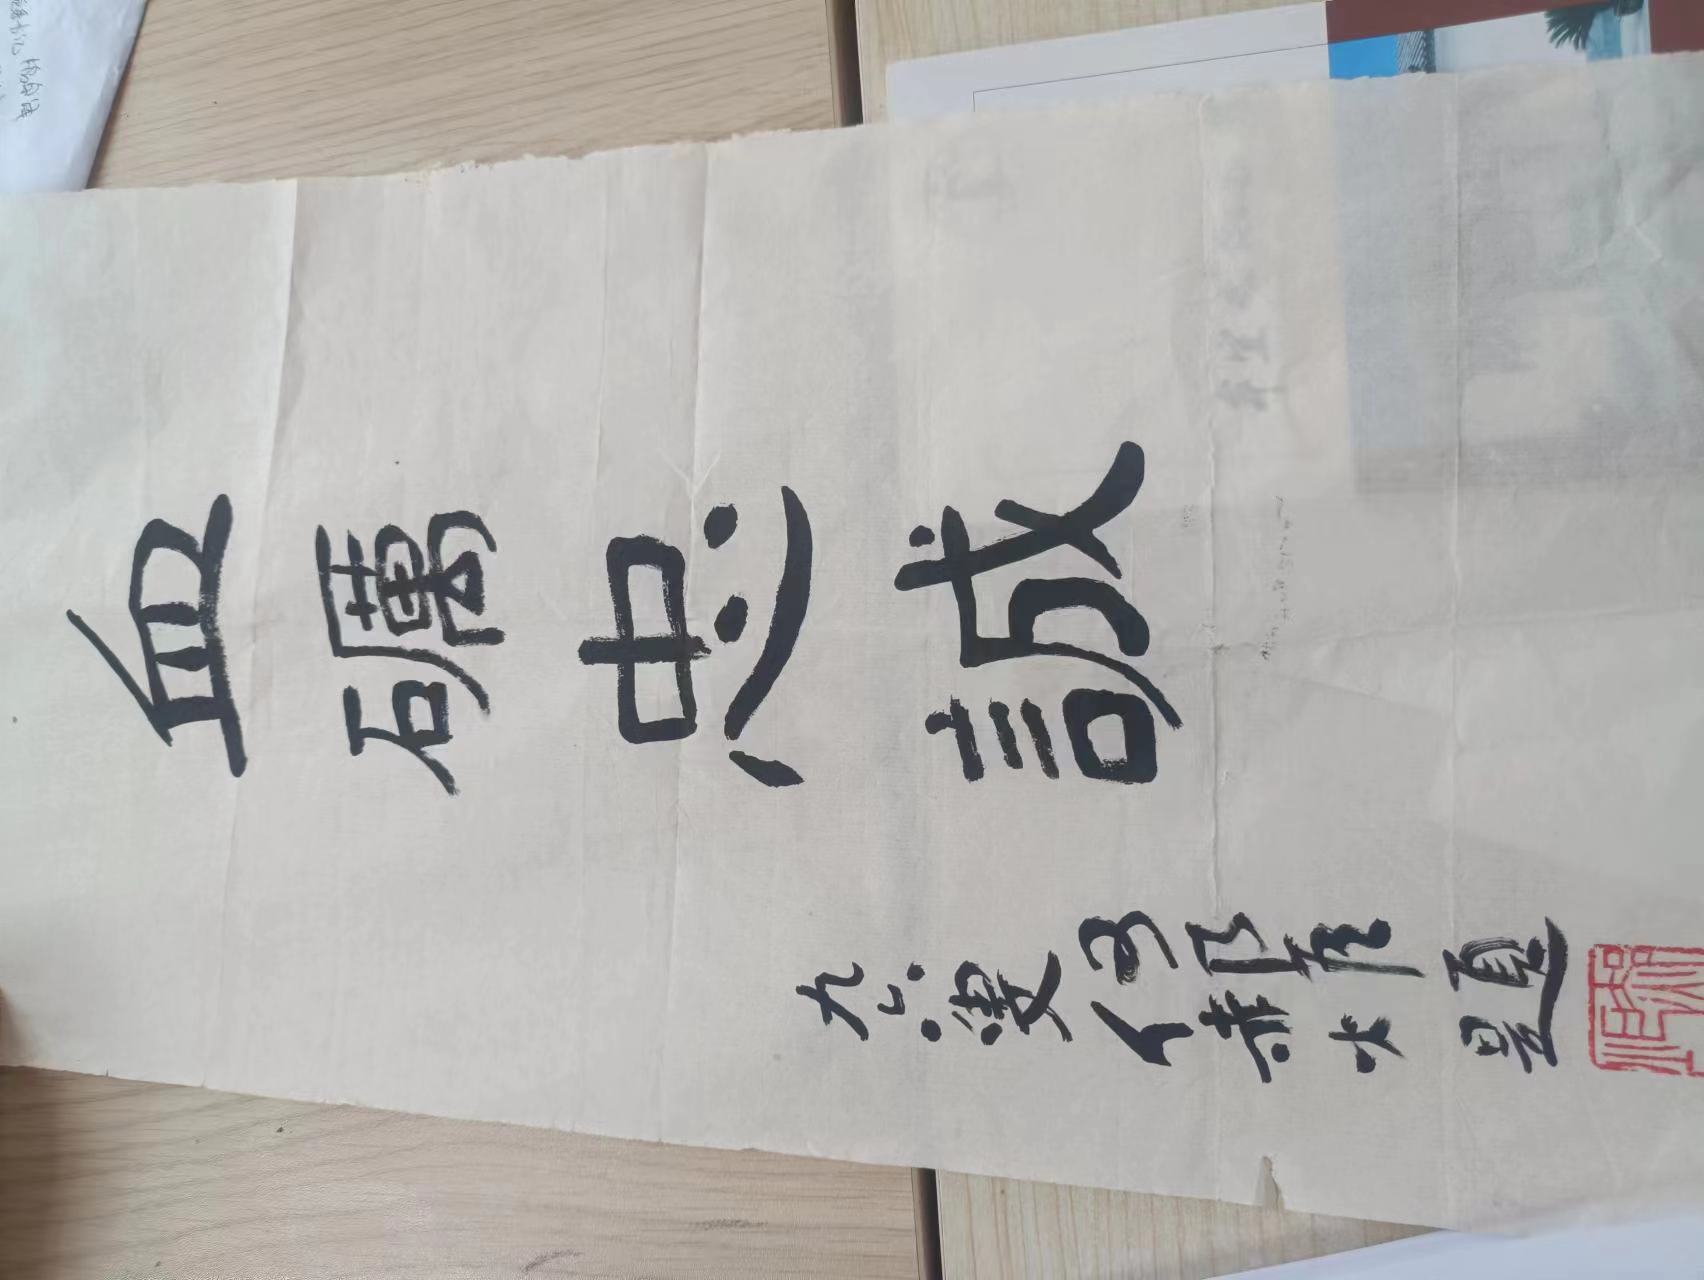 血礪忠誠
九六叟何郝炬題